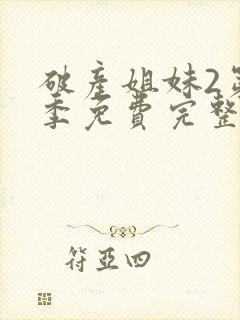 破产姐妹2第
季免费完整
符亚四